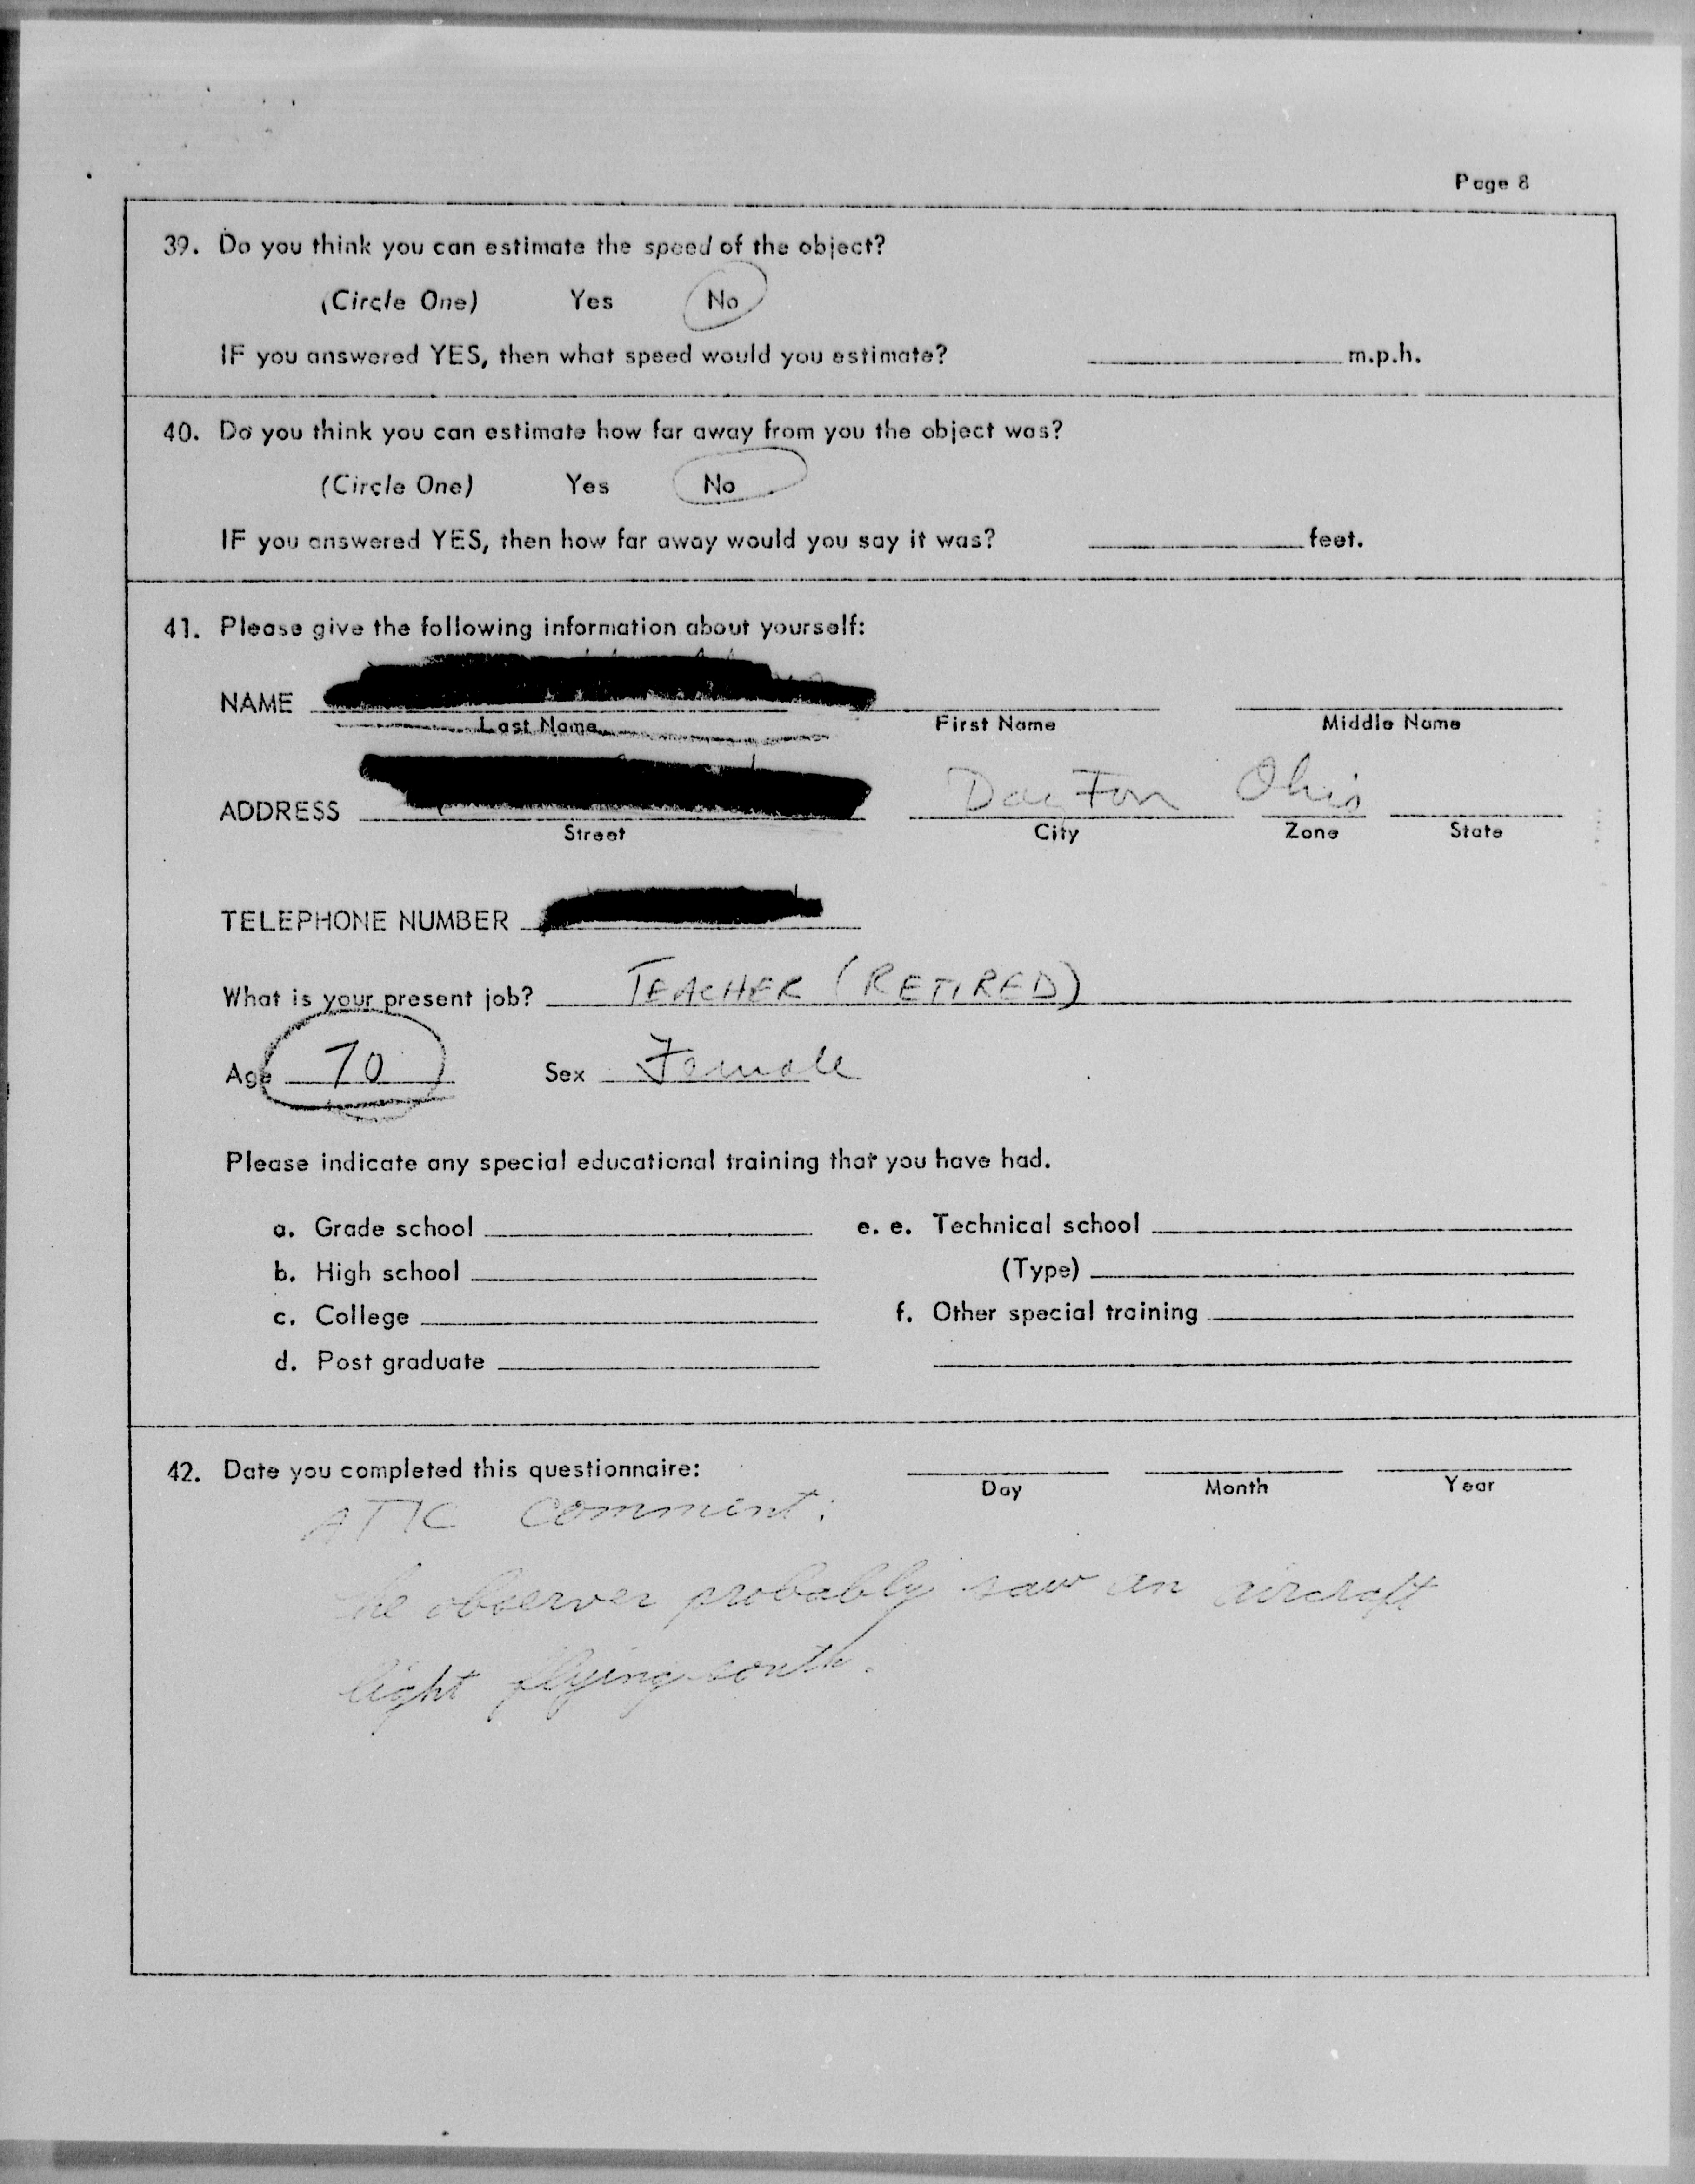 Page 8
39. Do you think you can estimate the speed of the object?
(Circle One) Yes No
IF you answered YES, then what speed would you estimate? m.p.h.
40. Do you think you can estimate how far away from you the object was?
(Circle One) Yes No
IF you answered YES, then how far away would you say it was? feet.
41. Please give the following information about yourself:
NAME
Last Name First Name Middle Name
ADDRESS Dayton Ohio
Street City Zone State
TELEPHONE NUMBER
What is your present job? TEACHER (RETIRED)
Age 70 Sex Female
Please indicate any special educational training that you have had.
a. Grade school e. e. Technical school
b. High school (Type)
c. College f. Other special training
d. Post graduate
42. Date you completed this questionnaire:
Day Month Year
ATIC Comment:
The observer probably saw an aircraft
light flying south.